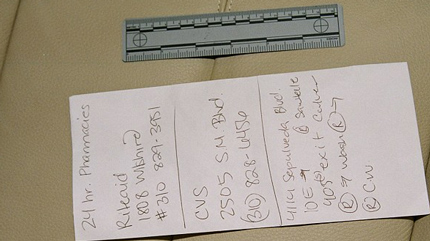 24 hr. Pharmacies
Riteaid
1808 Wilshire
#310 829-3951
CVS
2505 S M Blvd.
(310) 828-6456
4114 Sepulveda Blvd
10 E → & Sawtelle
405 exit Culver